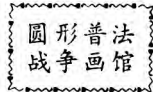 圆形普法
战争画馆